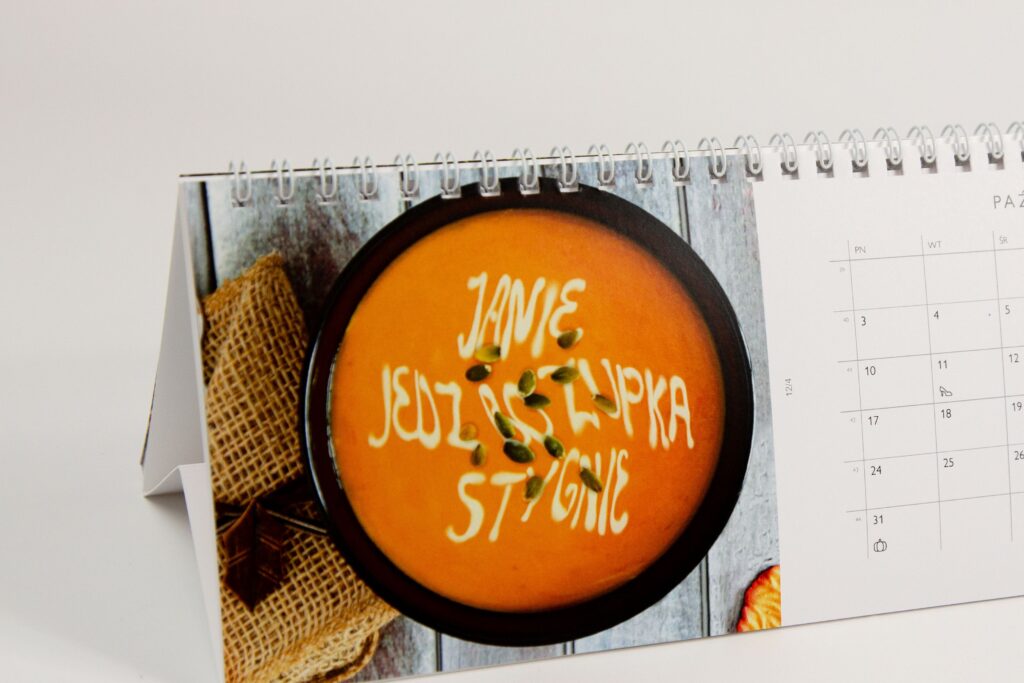 JANIE
JEDZ BO ZUPKA
STYGNIE
PAŹ
PN WT ŚR
3 4 5
10 11 12
17 18 19
24 25 26
31
12/4